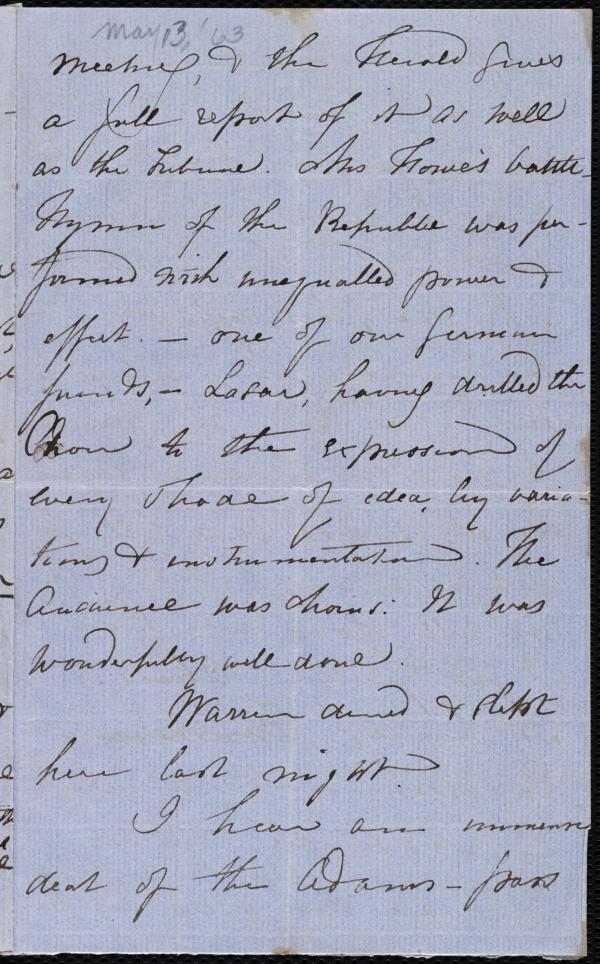 May 13, '63
meeting, & the Herald gives
a full report of it as well
as the Tribune. Mrs Howe's battle-
Hymn of the Republic was per-
formed with unequalled power &
effect. — one of our German
friends, — Lasar, having drilled the
Choir to the expression of
every shade of idea, by varia
tions & instrumentation. The
Audience was chorus: It was
wonderfully well done.
Warren dined & slept
here last night
I hear an immense
deal of the Adams - pass